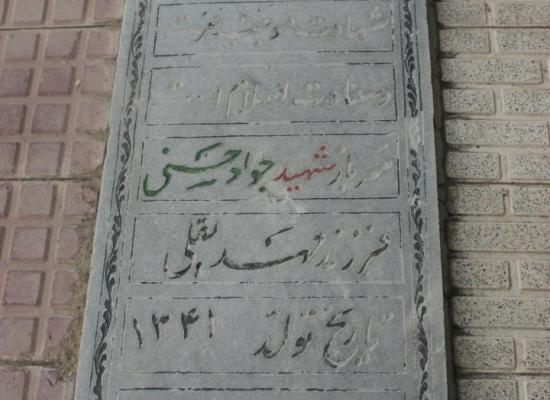 شهادت موجب عزت
و سعادت اسلام است
سرباز شهید جواد حسنی
فرزند مهدیقلی
تاریخ تولد ۱۳۴۱